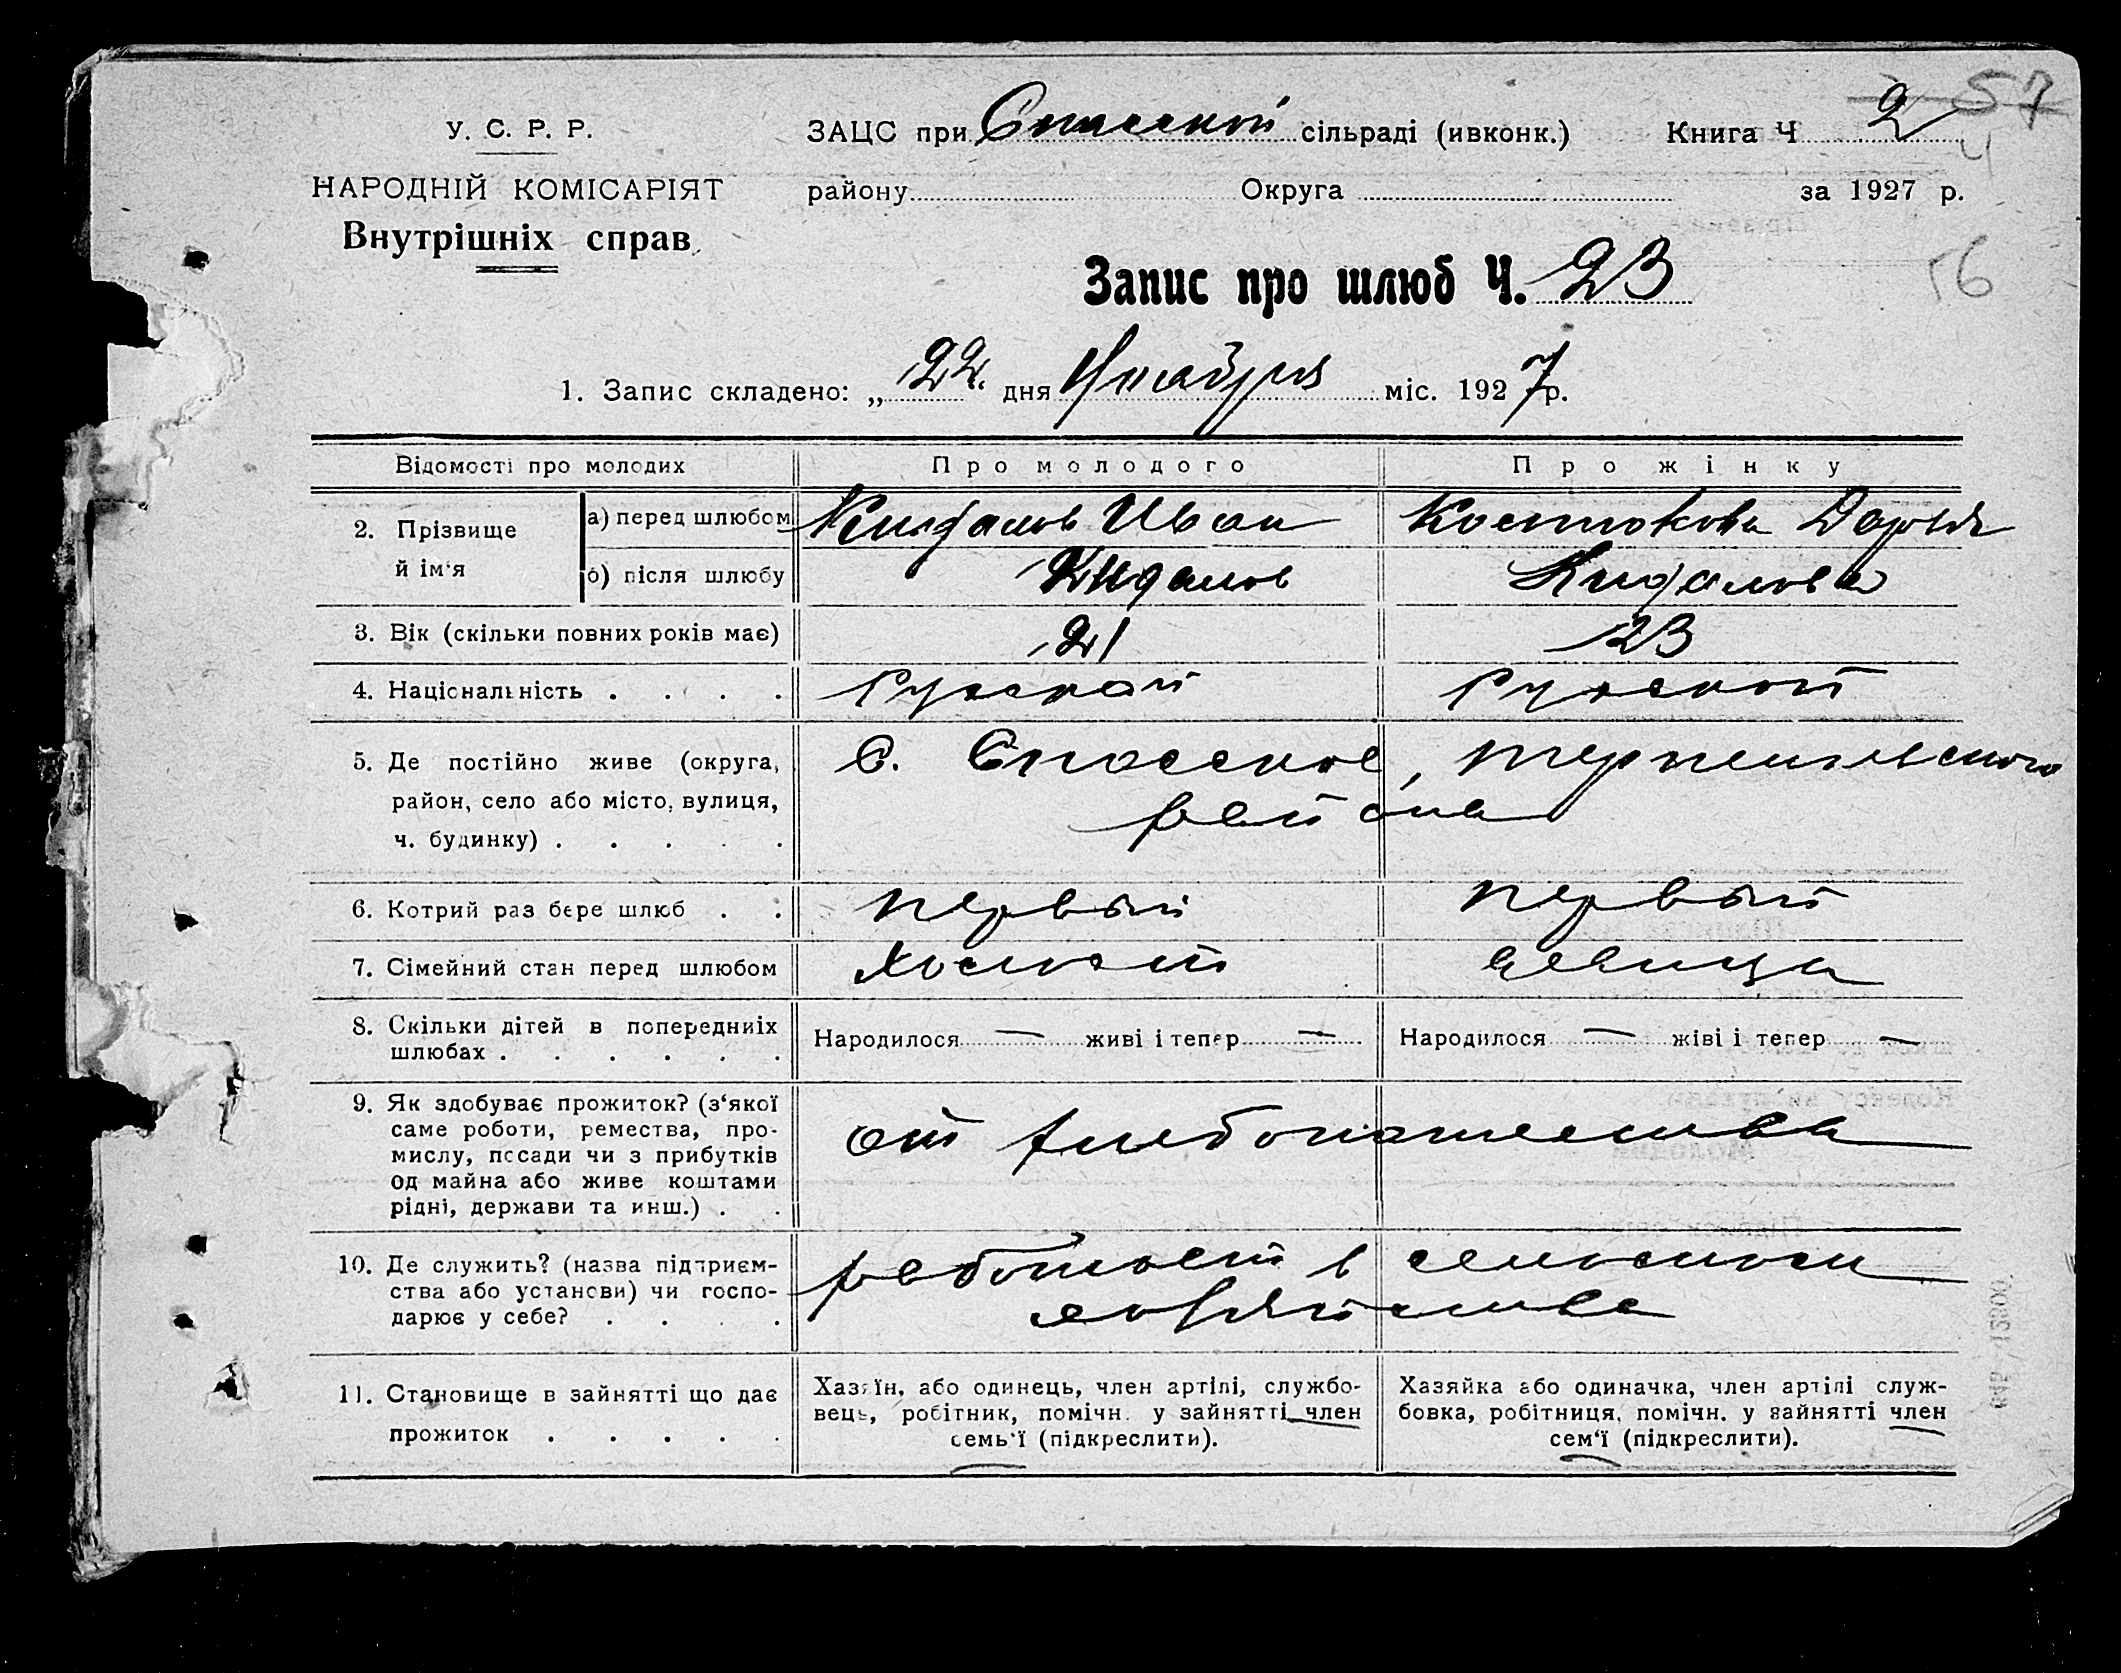 57
У. С. Р. Р.
ЗАЦС при Спасской сільраді (ивконк.) Книга Ч 2
4
НАРОДНІЙ КОМІСАРІЯТ
району Округа за 1927 р.
Внутрішніх справ
Запис про шлюб Ч. 23
56
1. Запис складено: „22 дня Ноября міс. 1927 р.
Відомості про молодих Про молодого Про жінку
2. Прізвище й ім'я
а) перед шлюбом Кидалов Иван Костюкова Дарья
б) після шлюбу Кидалов Кидалова
3. Вік (скільки повних років має) 21 23
4. Національність . . . . Руской Руской
5. Де постійно живе (округа, С. Спасское, терпеньевского
район, село або місто, вулиця, района
ч. будинку) . . . . .
6. Котрий раз бере шлюб . . первый первый
7. Сімейний стан перед шлюбом холостой девица
8. Скільки дітей в попередниіх Народилося — живі і тепер — Народилося — жіві і тепер —
шлюбах . . . . . .
9. Як здобуває прожиток? (з‘якої
саме роботи, ремества, про- от хлебопашества
мислу, посади чи з прибутків
од майна або живе коштами
рідні, держави та инш.) . .
10. Де служить? (назва підприєм- работает в сельском
ства або установи) чи госпо- хозяйстве
дарює у себе? . . . .
11. Становище в зайнятті що дає Хазяїн, або одинець, член артілі, службо- Хазяйка або одиначка, член артілі служ-
вець, робітник, помічн. у зайнятті член бовка, робітниця, помічн. у зайнятті член
прожиток . . . . . семь‘ї (підкреслити). сем‘ї (підкреслити).